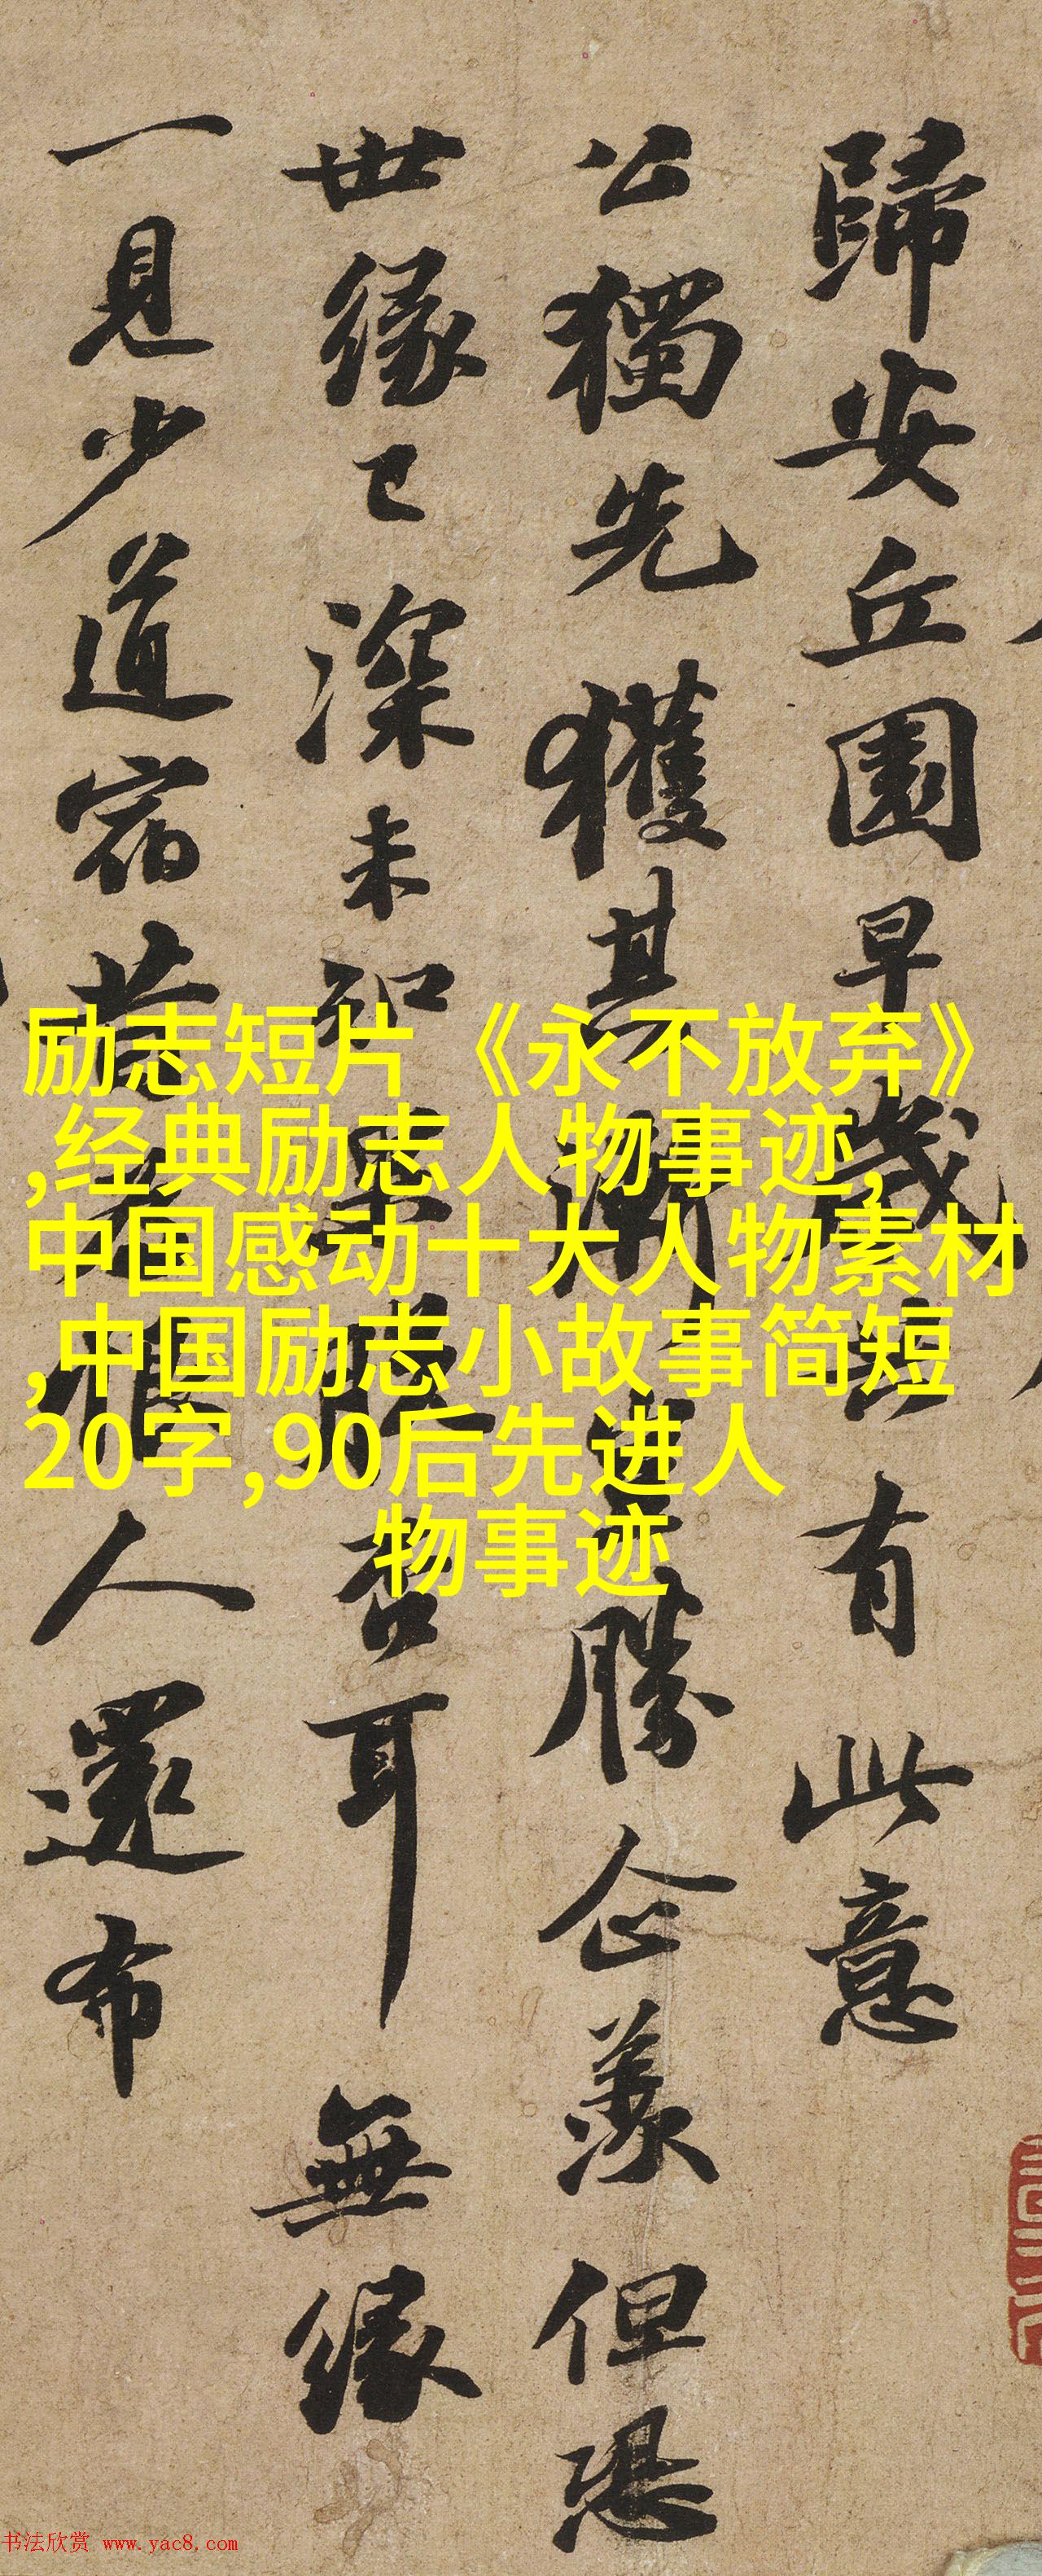 歸安丘園早歲共有此意
公獨先獲其漸豈勝企羨但恐
世緣已深未知果脫否耳無緣
一見少道宿昔為恨人還布
励志短片《永不放弃》
,经典励志人物事迹,
中国感动十大人物素材
,中国励志小故事简短
20字,90后先进人
物事迹
书法欣赏 www.yac8.com